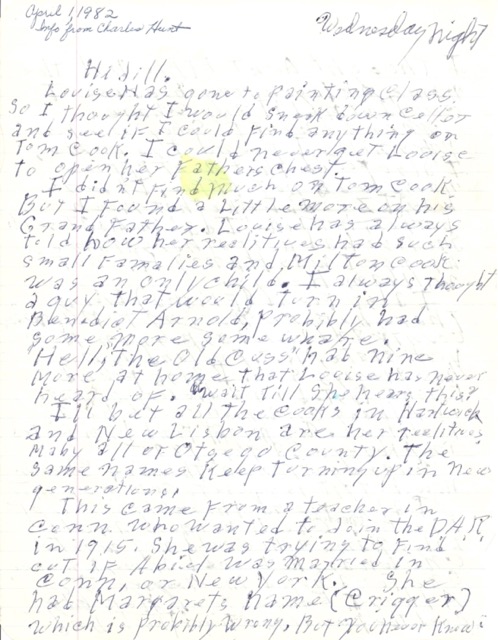 April 1, 1982
Info from Charles Hunt
Wednesday Night
Hi Jill.
Louise has gone to painting class
so I thought I would sneak down celler
and see if I could find anything on
Tom Cook. I could never get Louise
to open her Fathers chest.
I didn't find much on Tom Cook
But I found a Little more on his
Grand Father. Louise has always
told how her realitives had such
small families and Milton Cook
was an only child. I always thought
a guy that would turn in
Benedict Arnold, probibly had
some more some whare.
Hell, the Old Cuss had nine
more at home that Louise has never
heard of. Wait till she hears this?
I'll bet all the Cooks in Hartwick
and New Lisbon are her realitives
Maby all of Otsego County. The
same names keep turning up in new
generations.
This came from a teacher in
Conn. who wanted to Join the D.A.R.
in 1915. She was trying to find
out if Abiel was married in
Conn, or New York. She
had Margarets name (Crigger)
which is probibly wrong, But you never know.